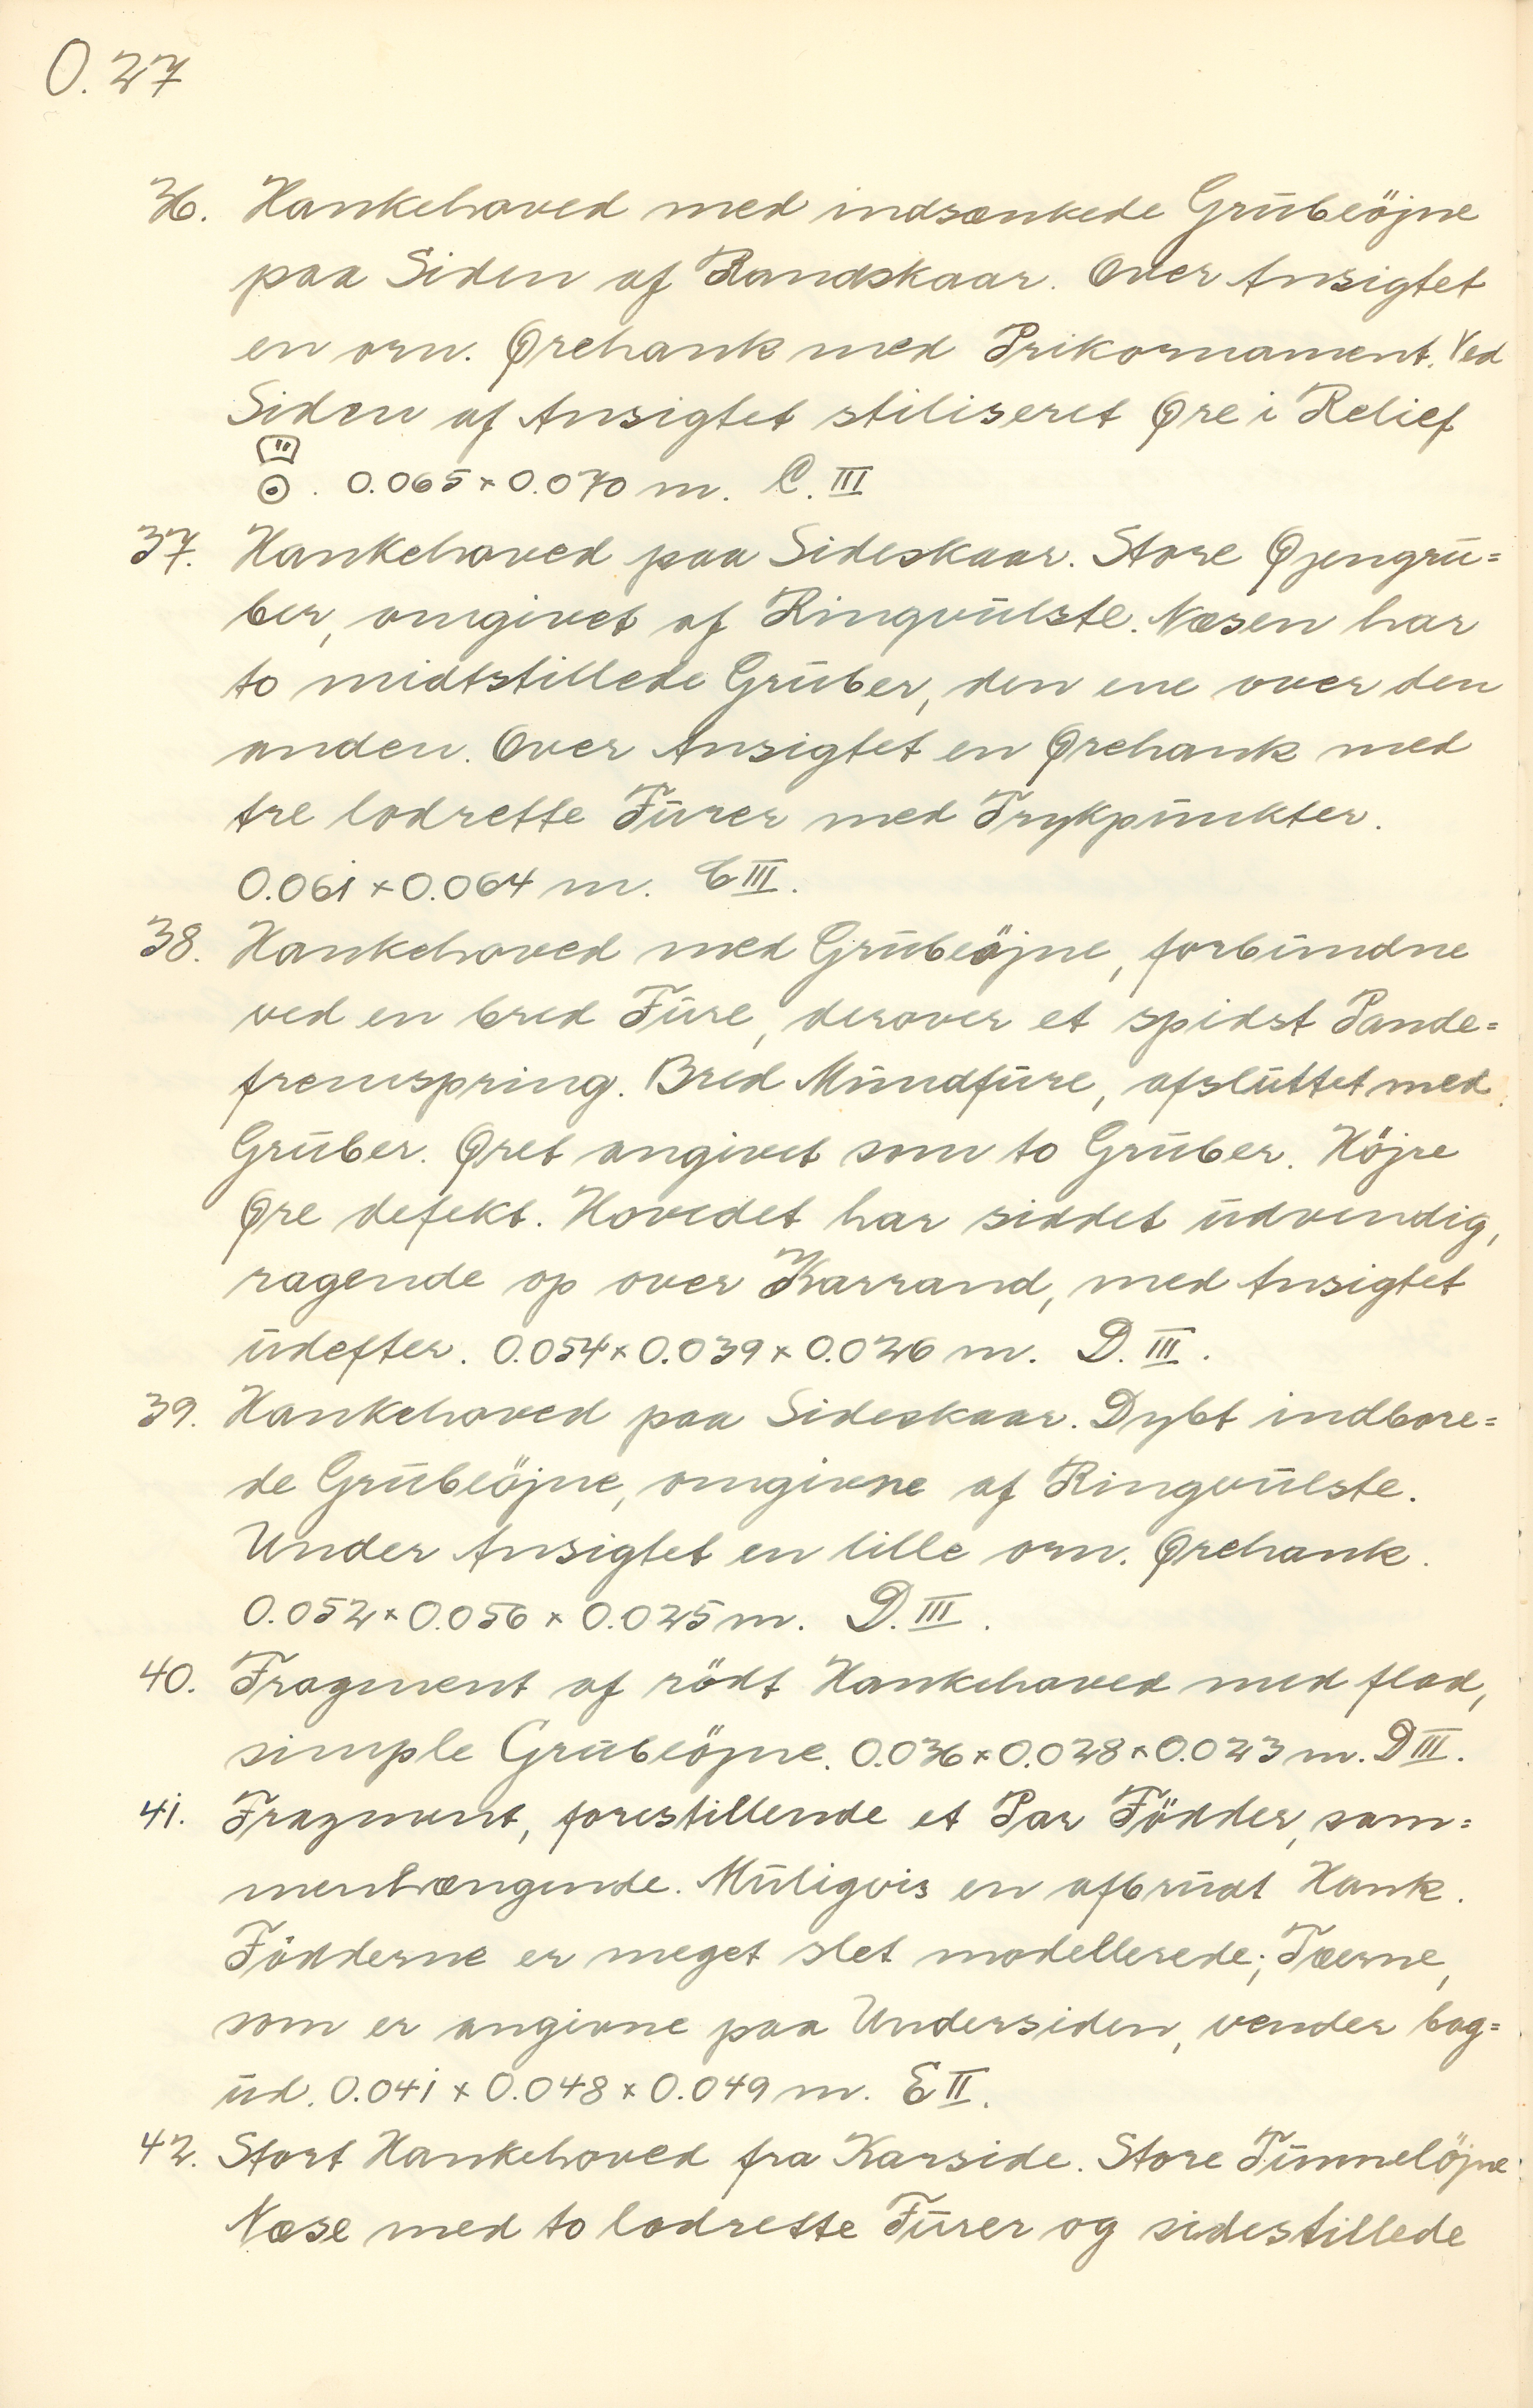 O. 27
36. Hankehoved med indsænkede Grubeöjne
paa Siden af Randskaar. Over Ansigtet
en orn. Ørehank med Prikornament. Ved
Siden af Ansigtet stiliseret Øre i Relief
. 0.065 x 0.070 m. C. III
37. Hankehoved paa Sideskaar. Store Øjengru=
ber, omgivet af Ringvulste. Næsen har
to midtstillede Gruber, den ene over den
anden. Over Ansigtet en Ørehank med
tre lodrette Furer med Trykpunkter.
0.061 x 0.064 m. C III.
38. Hankehoved med Grubeöjne, forbundne
ved en bred Fure, derover et spidst Pande=
fremspring. Bred Mundfure, afsluttet med
Gruber. Øret angivet som to Gruber. Höjre
Øre defekt. Hovedet har siddet udvendig,
ragende op over Karrand, med Ansigtet
udefter. 0.054 x 0.039 x 0.026 m. D. III.
39. Hankehoved paa Sideskaar. Dybt indbore=
de Grubeöjne, omgivne af Ringvulste.
Under Ansigtet en lille orn. Ørehank.
0.052 x 0.056 x 0.025 m. D. III.
40. Fragment af rödt Hankehoved med flad,
simple Grubeöjne. 0.036 x 0.028 x 0.023 m. D III.
41. Fragment, forestillende et Par Födder, sam=
menhængende. Muligvis en afbrudt Hank.
Födderne er meget slet modellerede; Tæerne,
som er angivne paa Undersiden, vender bag=
ud. 0.041 x 0.048 x 0.049 m. E II.
42. Stort Hankehoved fra Karside. Store Tunneløjne
Næse med to lodrette Furer og sidestillede